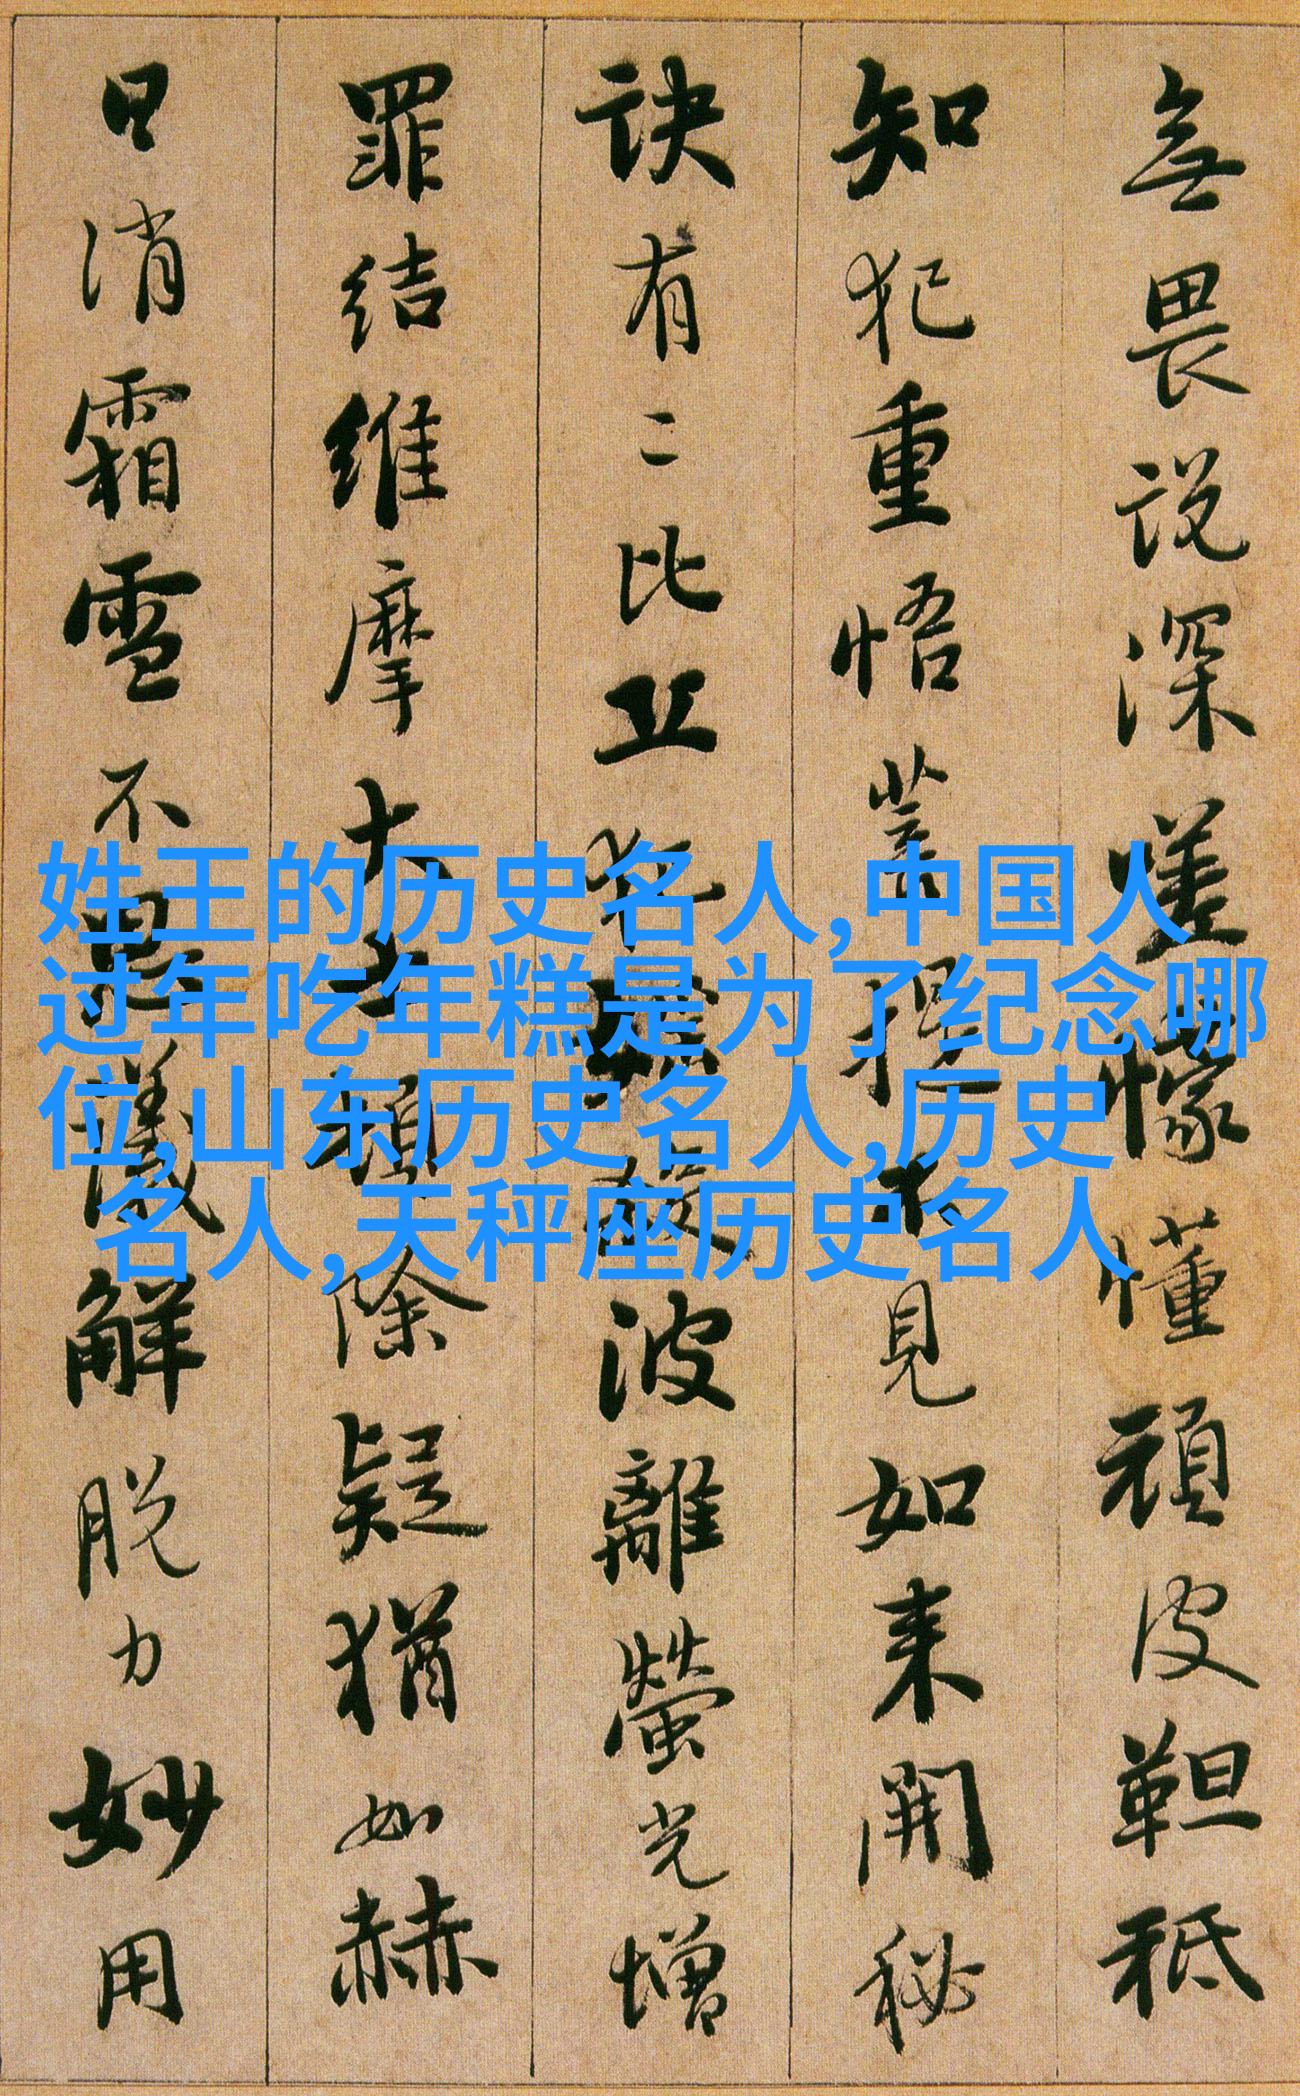 無畏說深嗟懞懂頑皮靼秖
知犯重悟菩提不見如來開秘
訣有二比丘犯婬殺波離螢光增
罪結維摩大士頓除疑猶如赫
日消霜雪不思議解脫力妙用
姓王的历史名人,中国人
过年吃年糕是为了纪念哪
位,山东历史名人,历史
名人,天秤座历史名人